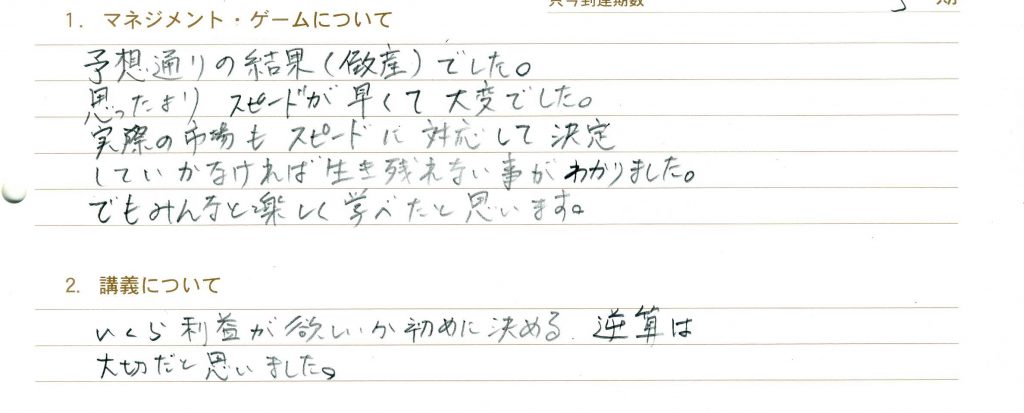 只今到達期数 5 期
1. マネジメント・ゲームについて
予想通りの結果(倒産)でした。
思ったより スピードが早くて大変でした。
実際の市場もスピードに対応して決定
していかなければ生き残れない事がわかりました。
でもみんなと楽しく学べたと思います。
2. 講義について
いくら利益が欲しいか初めに決める 逆算は
大切だと思いました。